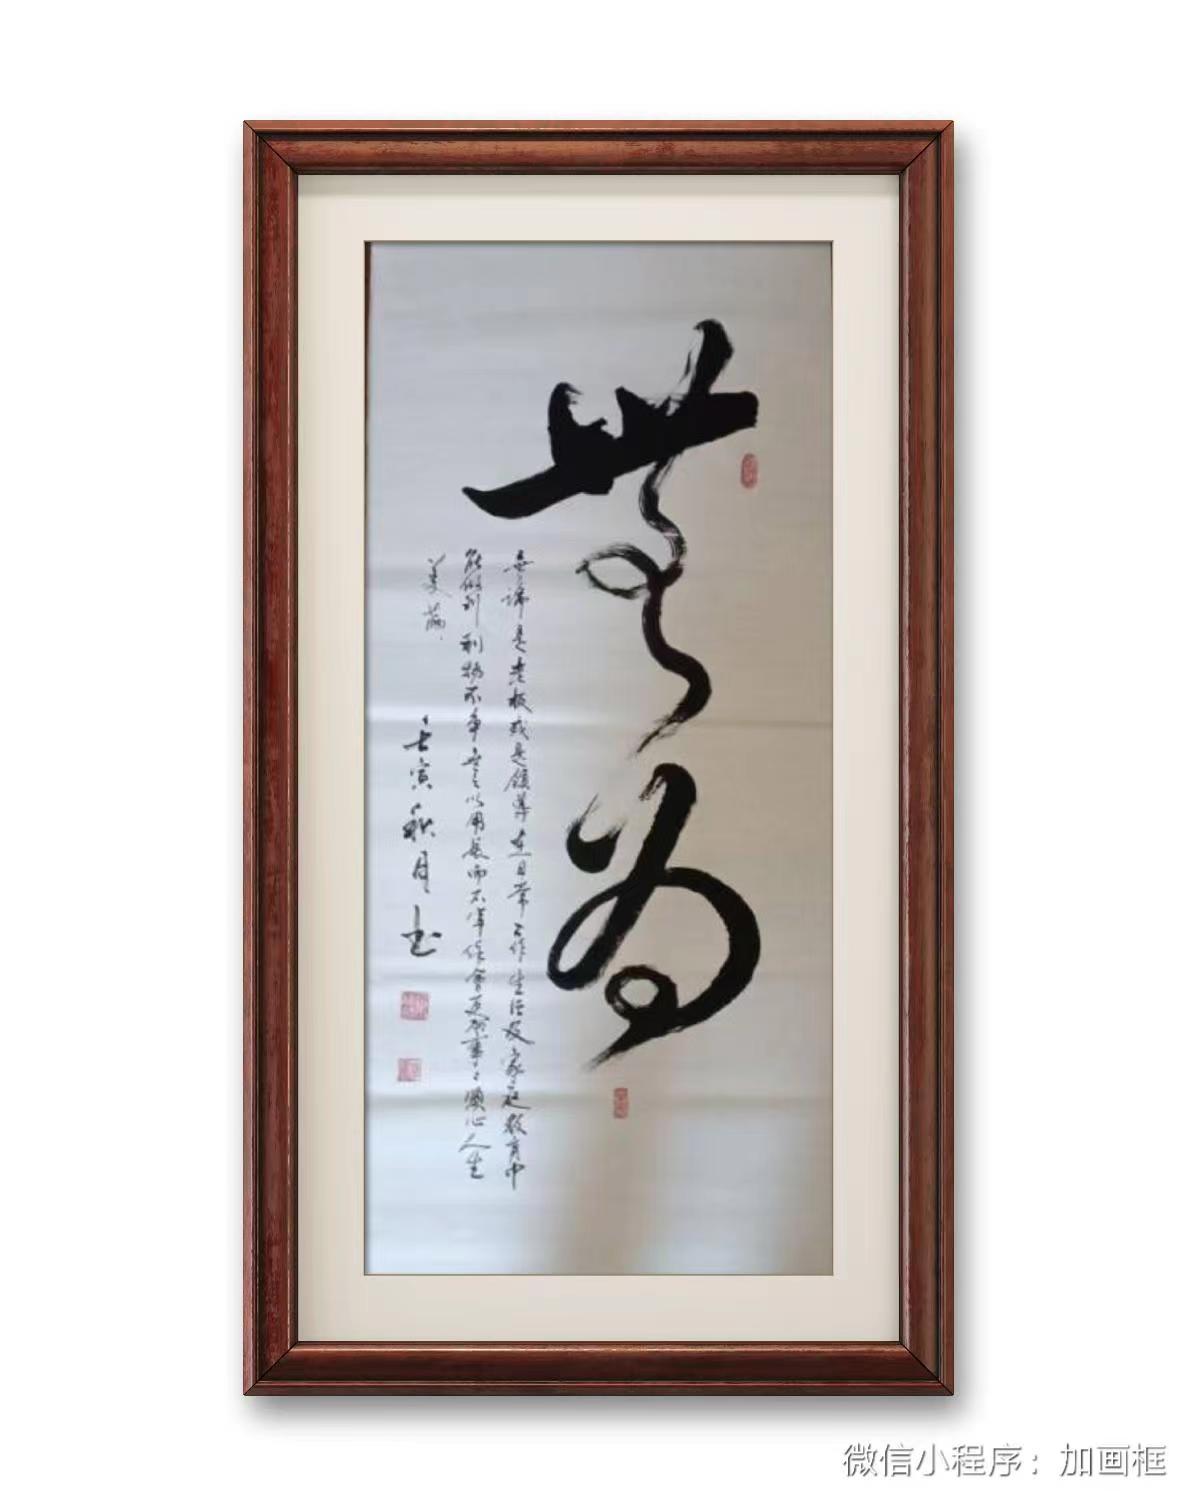 無為
無論是老板或是領導在日常工作生活及家庭教育中
能做到利物不爭無以用長而不宰你會更加事事順心人生
美滿
壬寅秋月書
微信小程序：加画框